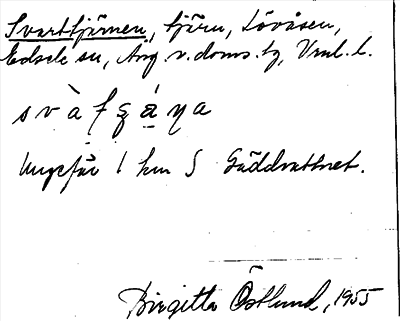 Svarttjärnen, tjärn, Lövåsen,
Edsele sn, Ång. v. doms. tg, Vnrl. l.
svàfşá̱ŋa
Ungefär 1 km S Gäddvattnet.
Birgitta Östlund, 1955